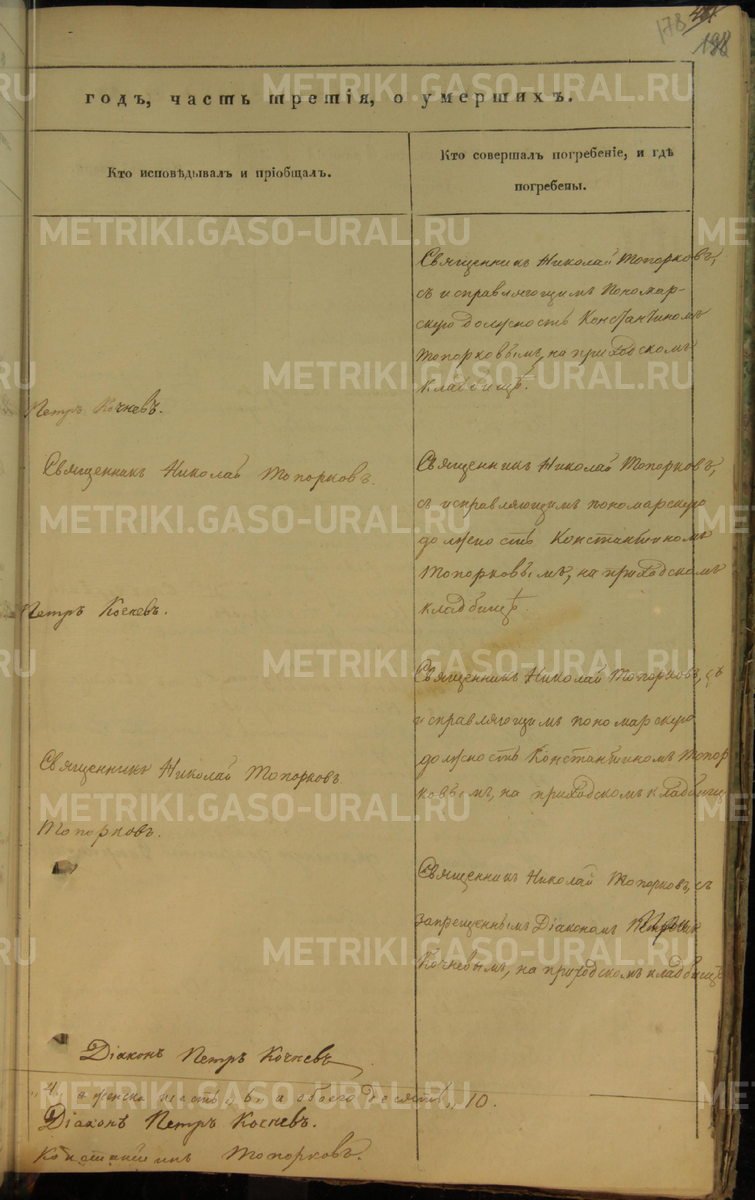 178
198
годъ, часть третія, о умершихъ.
Кто исповѣдывалъ и пріобщалъ.
Кто совершалъ погребеніе, и гдѣ
погребены.
Священникъ Николай Топорковъ,
съ исправляющимъ Пономар-
скую должность Константиномъ
Топорковымъ, на приходскомъ
кладбищѣ.
Петръ Кочневъ.
Священникъ Николай Топорковъ.
Священникъ Николай Топорковъ,
съ исправляющимъ пономарскую
должность Константиномъ
Топорковымъ, на приходскомъ
кладбищѣ.
Петръ Кочневъ.
Священникъ Николай Топорковъ, съ
исправляющимъ пономарскую
должность Константиномъ Топор
ковымъ, на приходскомъ кладбищ
Священникъ Николай Топорковъ
Топорковъ.
Священникъ Николай Топорковъ, съ
запрещеннымъ Діакономъ
Кочневымъ, на приходскомъ кладбищѣ
Діаконъ Петръ Кочневъ
"4, а женска шесть, 6, а обоего десять, 10.
Діаконъ Петръ Кочневъ.
Константинъ Топорковъ.
METRIKI.GASO-URAL.RU